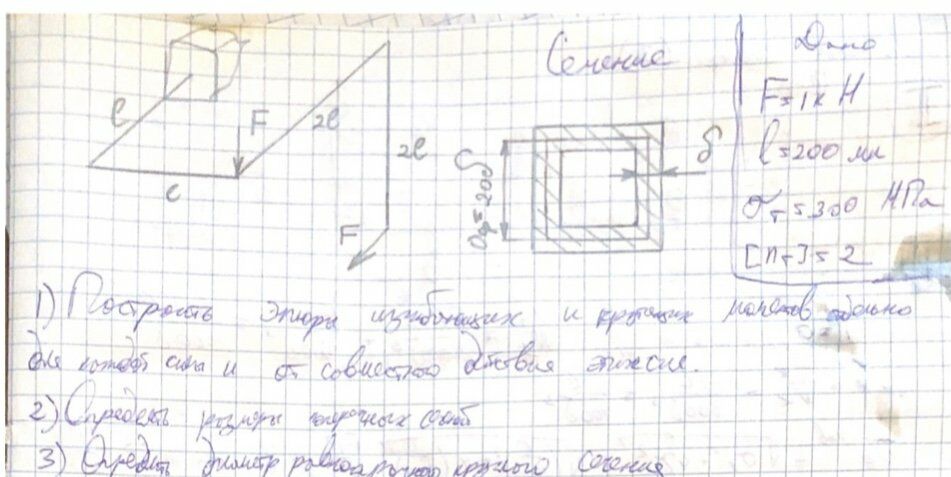 Сечение
Дано
F=1кН
l=200 мм
σт=300 МПа
[nт]=2
l
F
2l
l
2l
F
aср=20δ
δ
1) Построить эпюры изгибающих и крутящих моментов отдельно
для каждой силы и от совместного действия
2) Определить размеры поперечных сечений
3) Определить диаметр равнопрочного круглого сечения